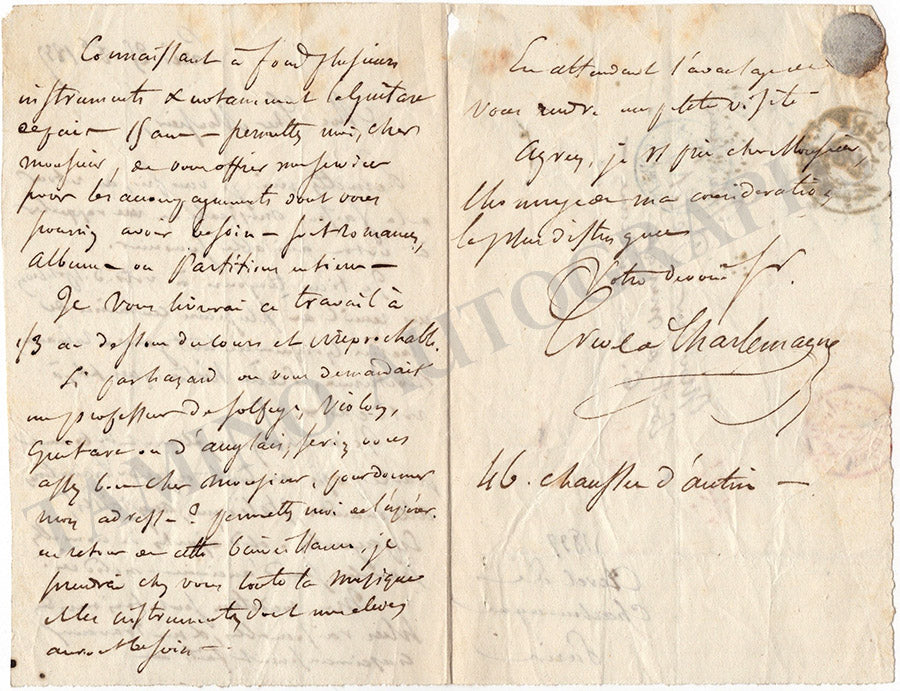 Connaissant à fond plusieurs
instruments & notamment la Guitare
depuis 15 ans – permettez moi, cher
monsieur, de vous offrir mes services
pour les accompagnements dont vous
pourriez avoir besoin – soit Romances,
Album – ou Partitions entières –
Je vous livrerai ce travail à
1/3 au dessous du cours et irréprochable.
Si par hazard on vous demandait
un professeur de solfège, Violon,
Guitare ou d'anglais, seriez vous
assez bon cher monsieur, pour donner
mon adresse – ? permettez moi de l'espérer.
en retour de cette bienveillance, je
prendrai chez vous toute la musique
& les instruments dont mes élèves
auront besoin –
En attendant l'avantage de
vous rendre une petite visite
Agréez, je vs prie cher Monsieur,
l'hommage de ma considération
la plus distinguée
Votre dévoué sr.
Charlemagne
46. chaussée d'antin –
TAMINO AUTOGRAPHS